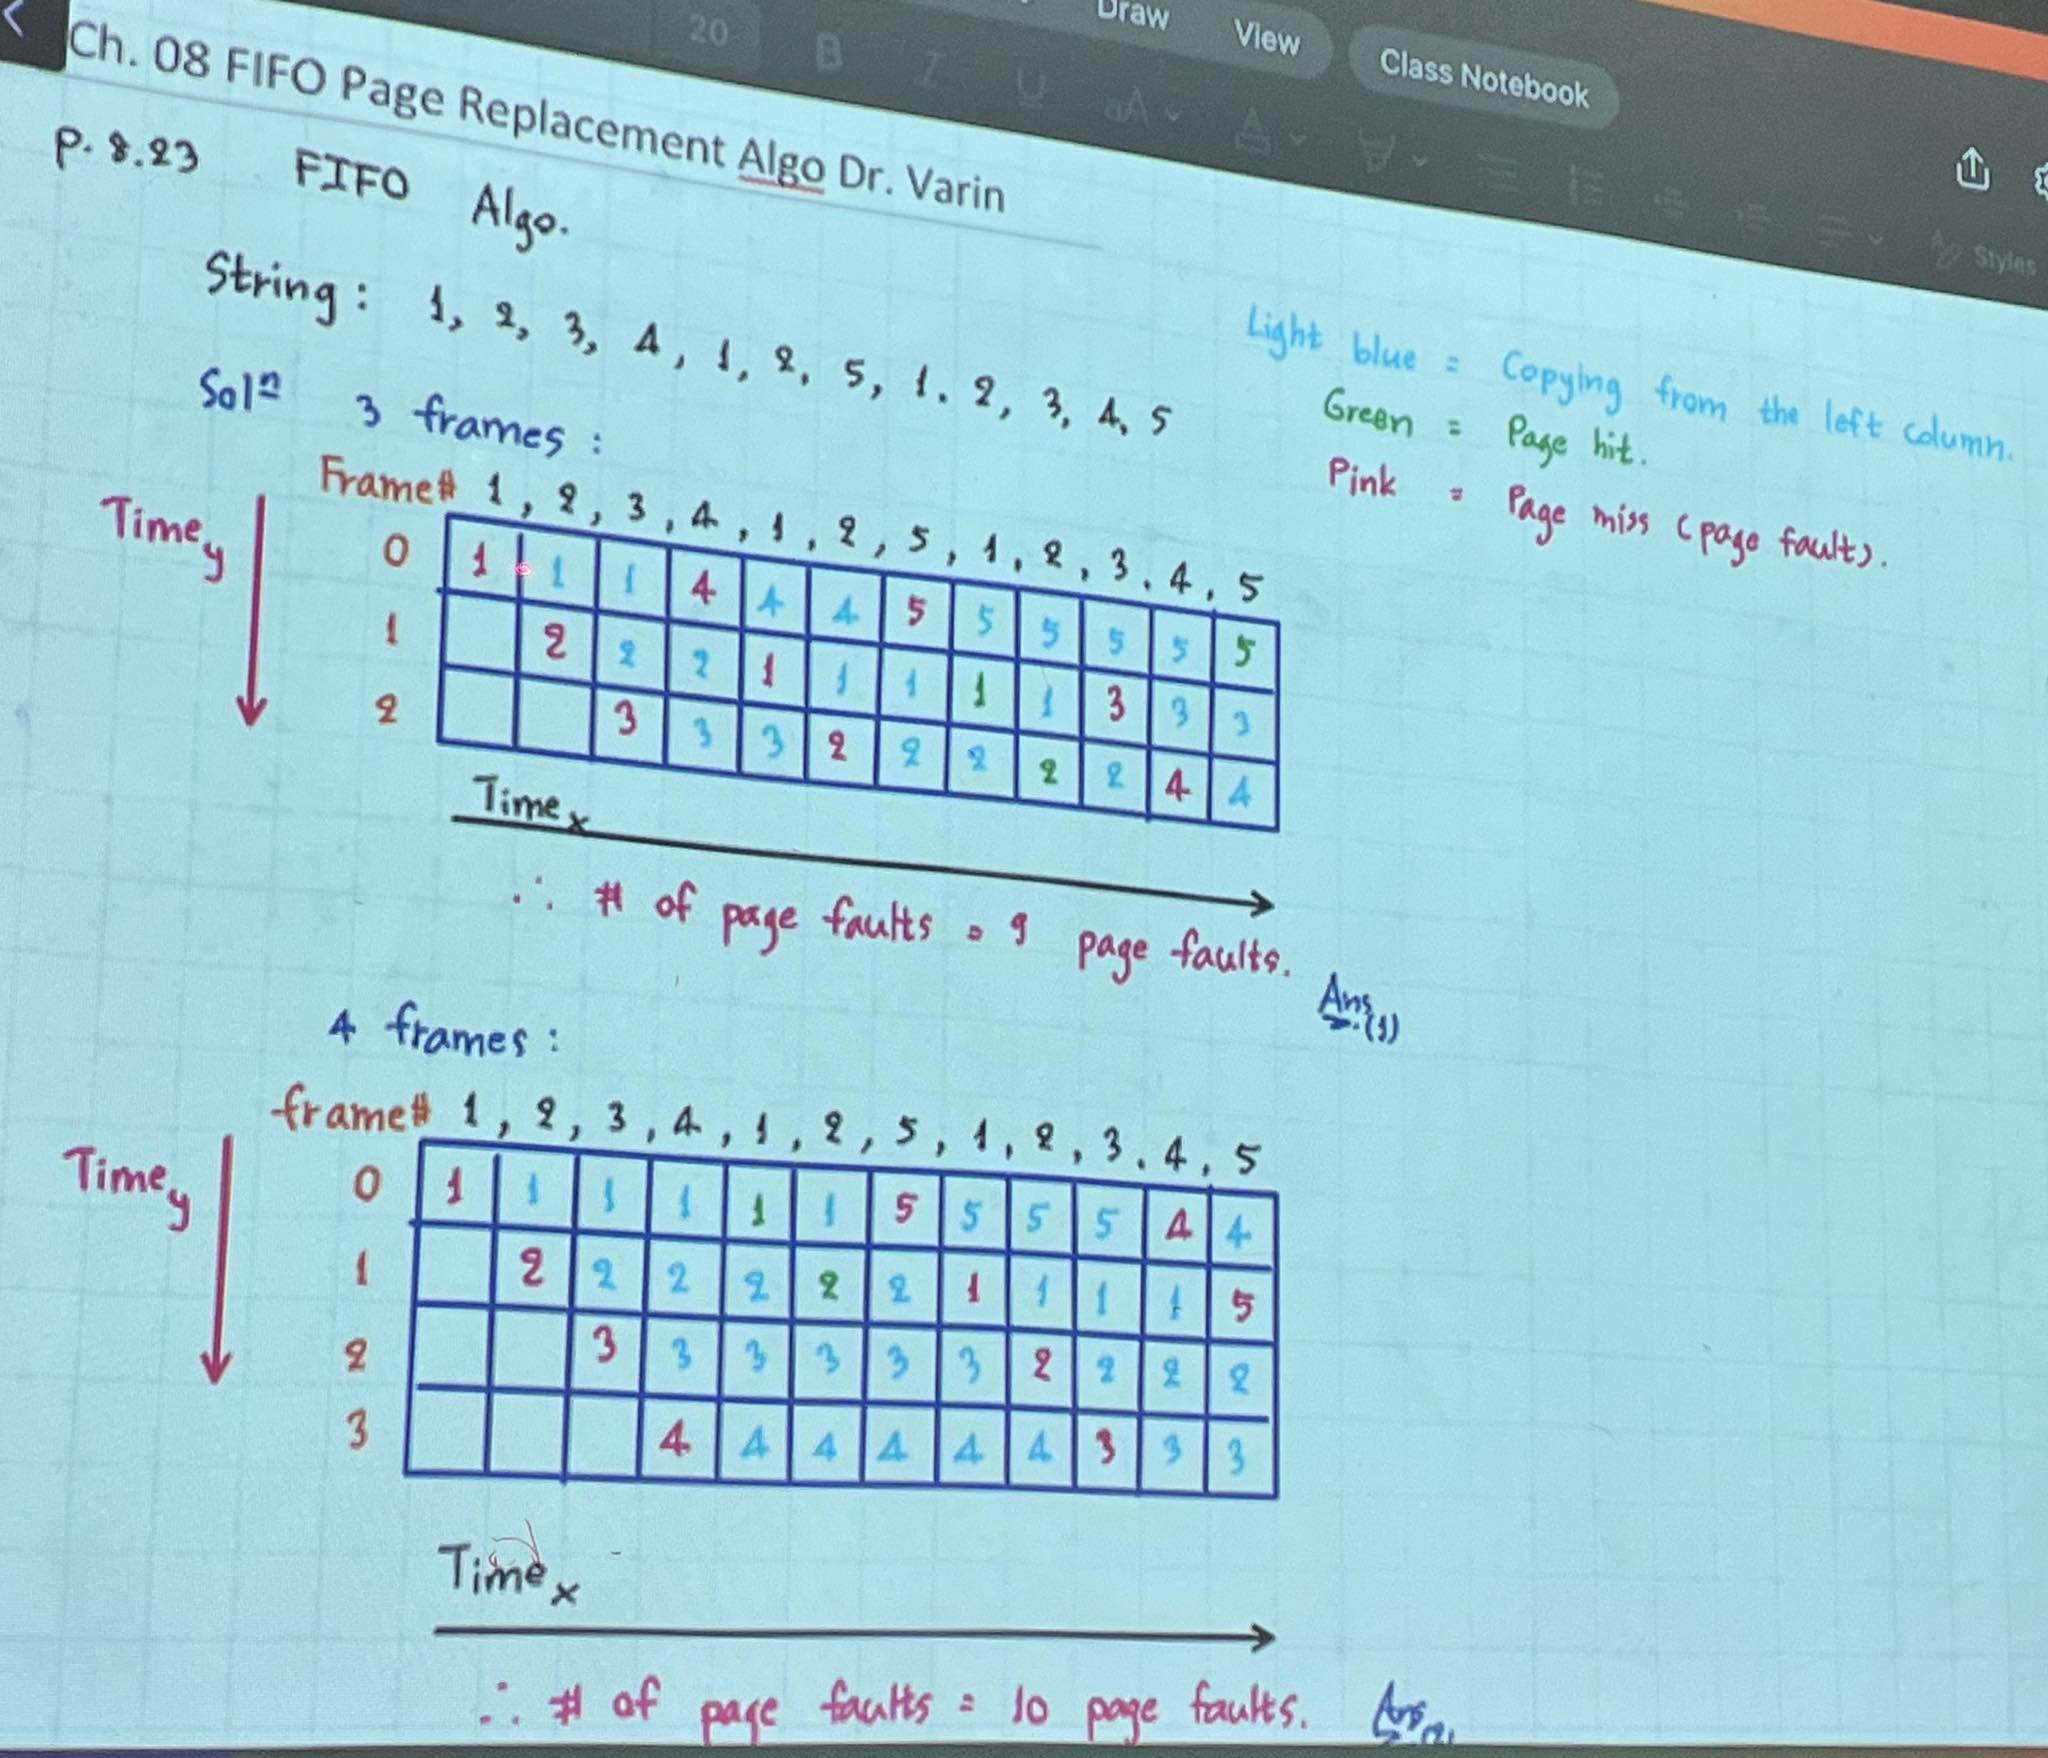 20 B I U aA A Draw View Class Notebook
Styles
Ch. 08 FIFO Page Replacement Algo Dr. Varin
P. 8.23 FIFO Algo.
String: 1, 2, 3, 4, 1, 2, 5, 1. 2, 3, 4, 5
Light blue = Copying from the left column.
Green = Page hit.
Pink = Page miss (page fault).
Solⁿ 3 frames:
Frame# 1, 2, 3, 4, 1, 2, 5, 1, 2, 3. 4, 5
Time y
0 1 1 1 4 4 4 5 5 5 5 5 5
1 2 2 2 1 1 1 1 1 3 3 3
2 3 3 3 2 2 2 2 2 4 4
Time x
∴ # of page faults = 9 page faults. Ans.(1)
4 frames:
frame# 1, 2, 3, 4, 1, 2, 5, 1, 2, 3. 4, 5
Time y
0 1 1 1 1 1 1 5 5 5 5 4 4
1 2 2 2 2 2 2 1 1 1 1 5
2 3 3 3 3 3 3 2 2 2 2
3 4 4 4 4 4 4 3 3 3
Time x
∴ # of page faults = 10 page faults. Ans